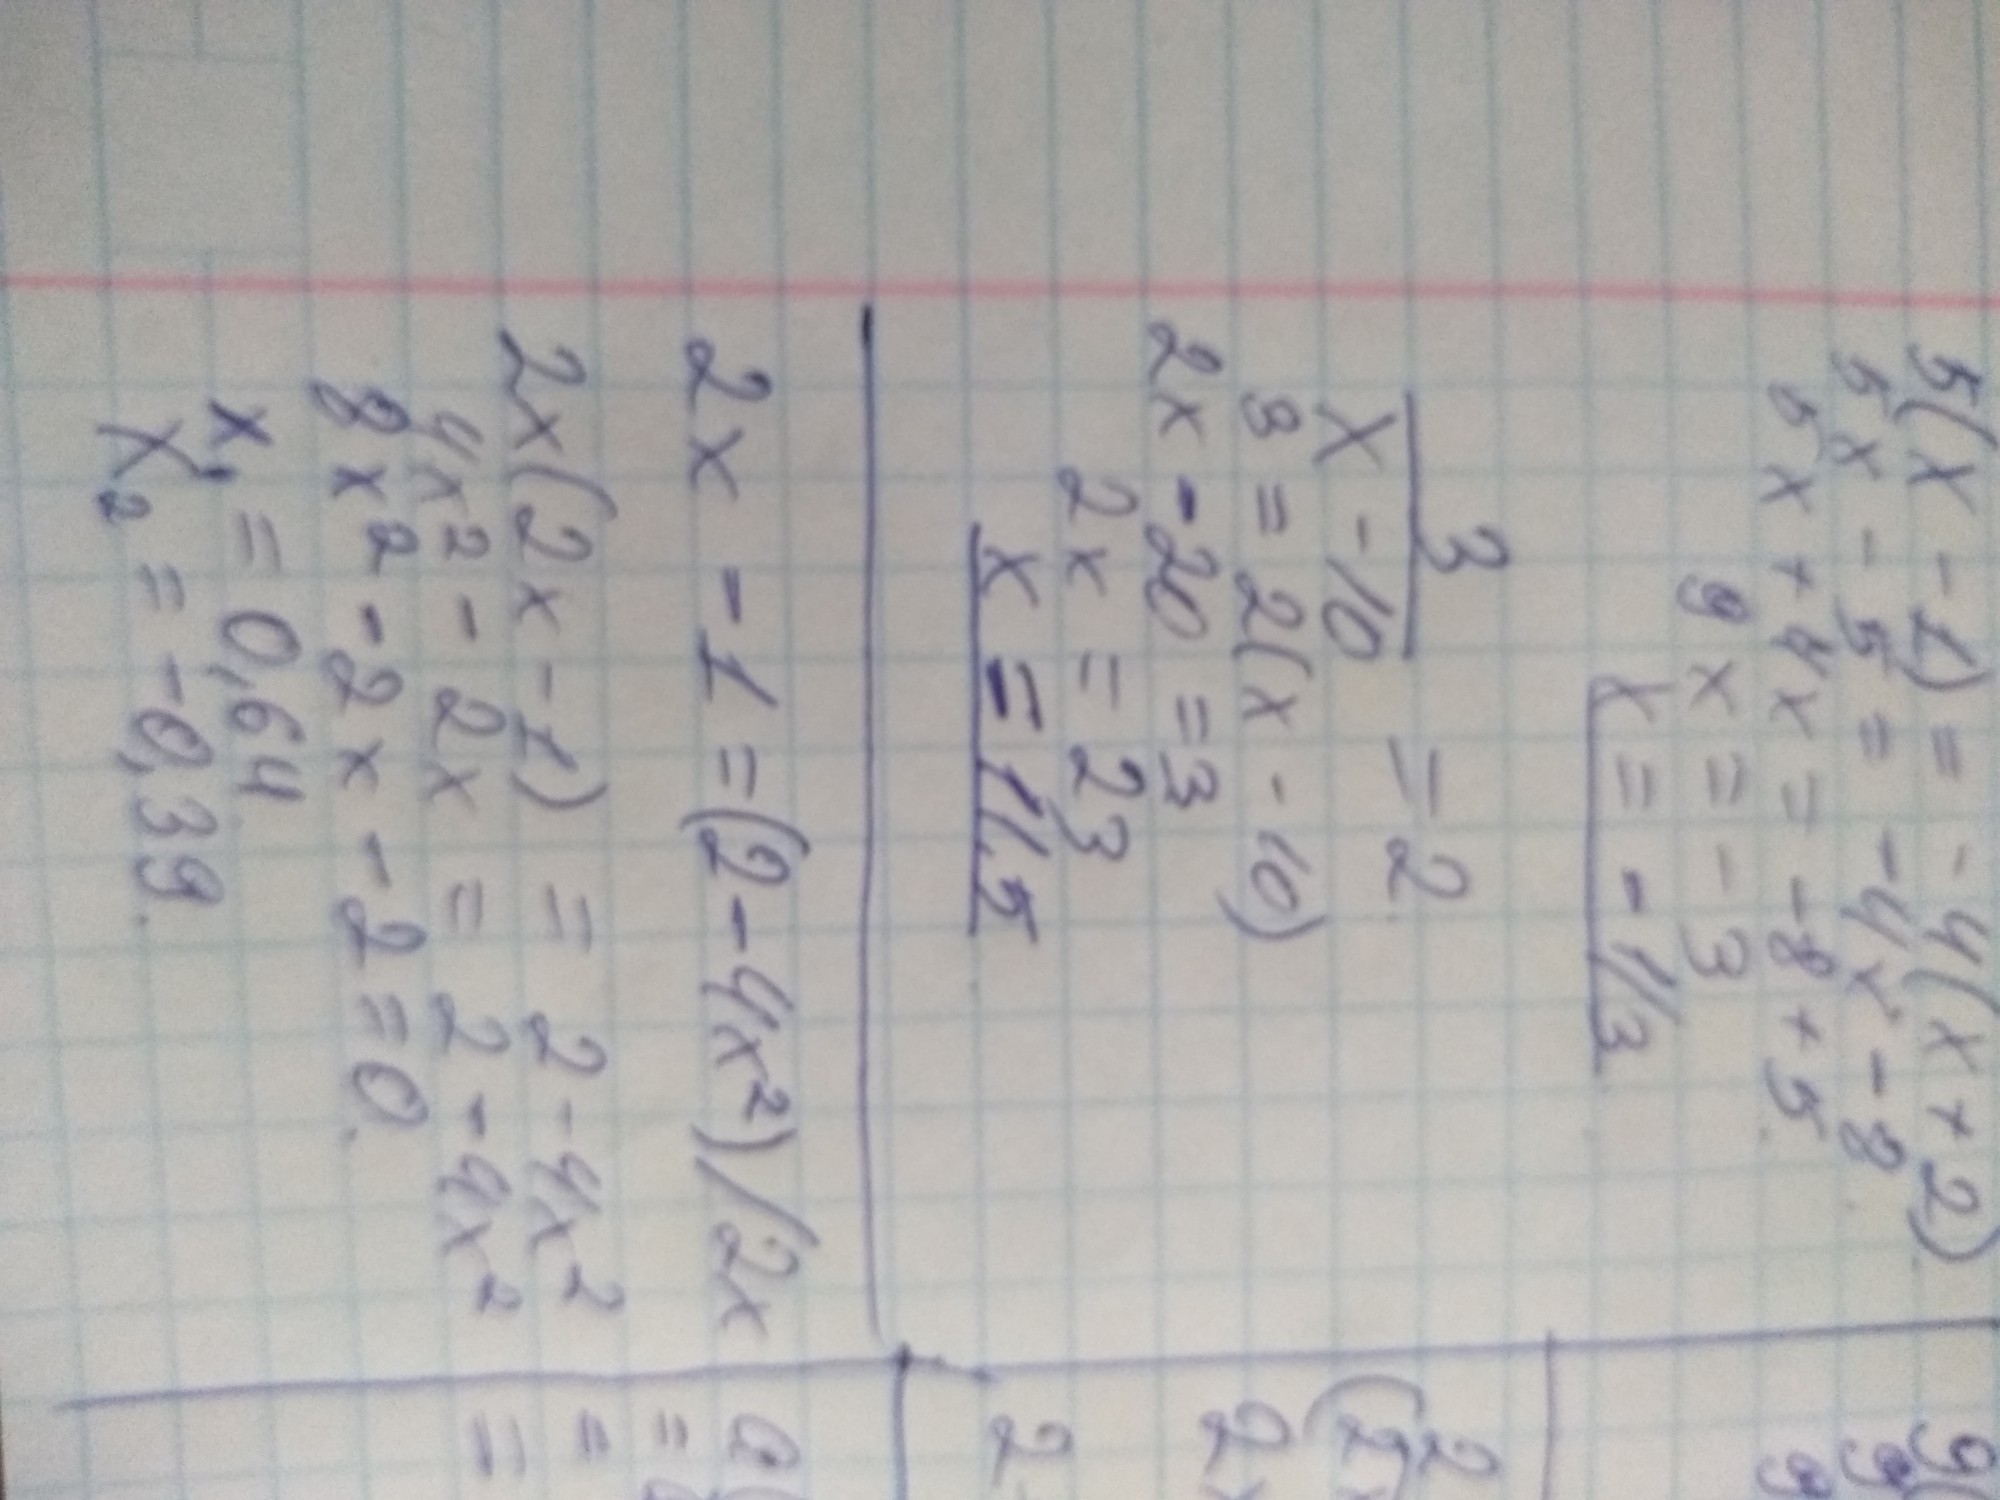 5(x - 1) = -4(x + 2)
5x - 5 = -4x - 8
5x + 4x = -8 + 5
9x = -3
x = -1/3
3
x - 10 = 2
3 = 2(x - 10)
2x - 20 = 3
2x = 23
x = 11.5
2x - 1 = (2 - 4x²)/2x
2x(2x - 1) = 2 - 4x²
4x² - 2x = 2 - 4x²
8x² - 2x - 2 = 0.
x₁ = 0,64
x₂ = -0,39.